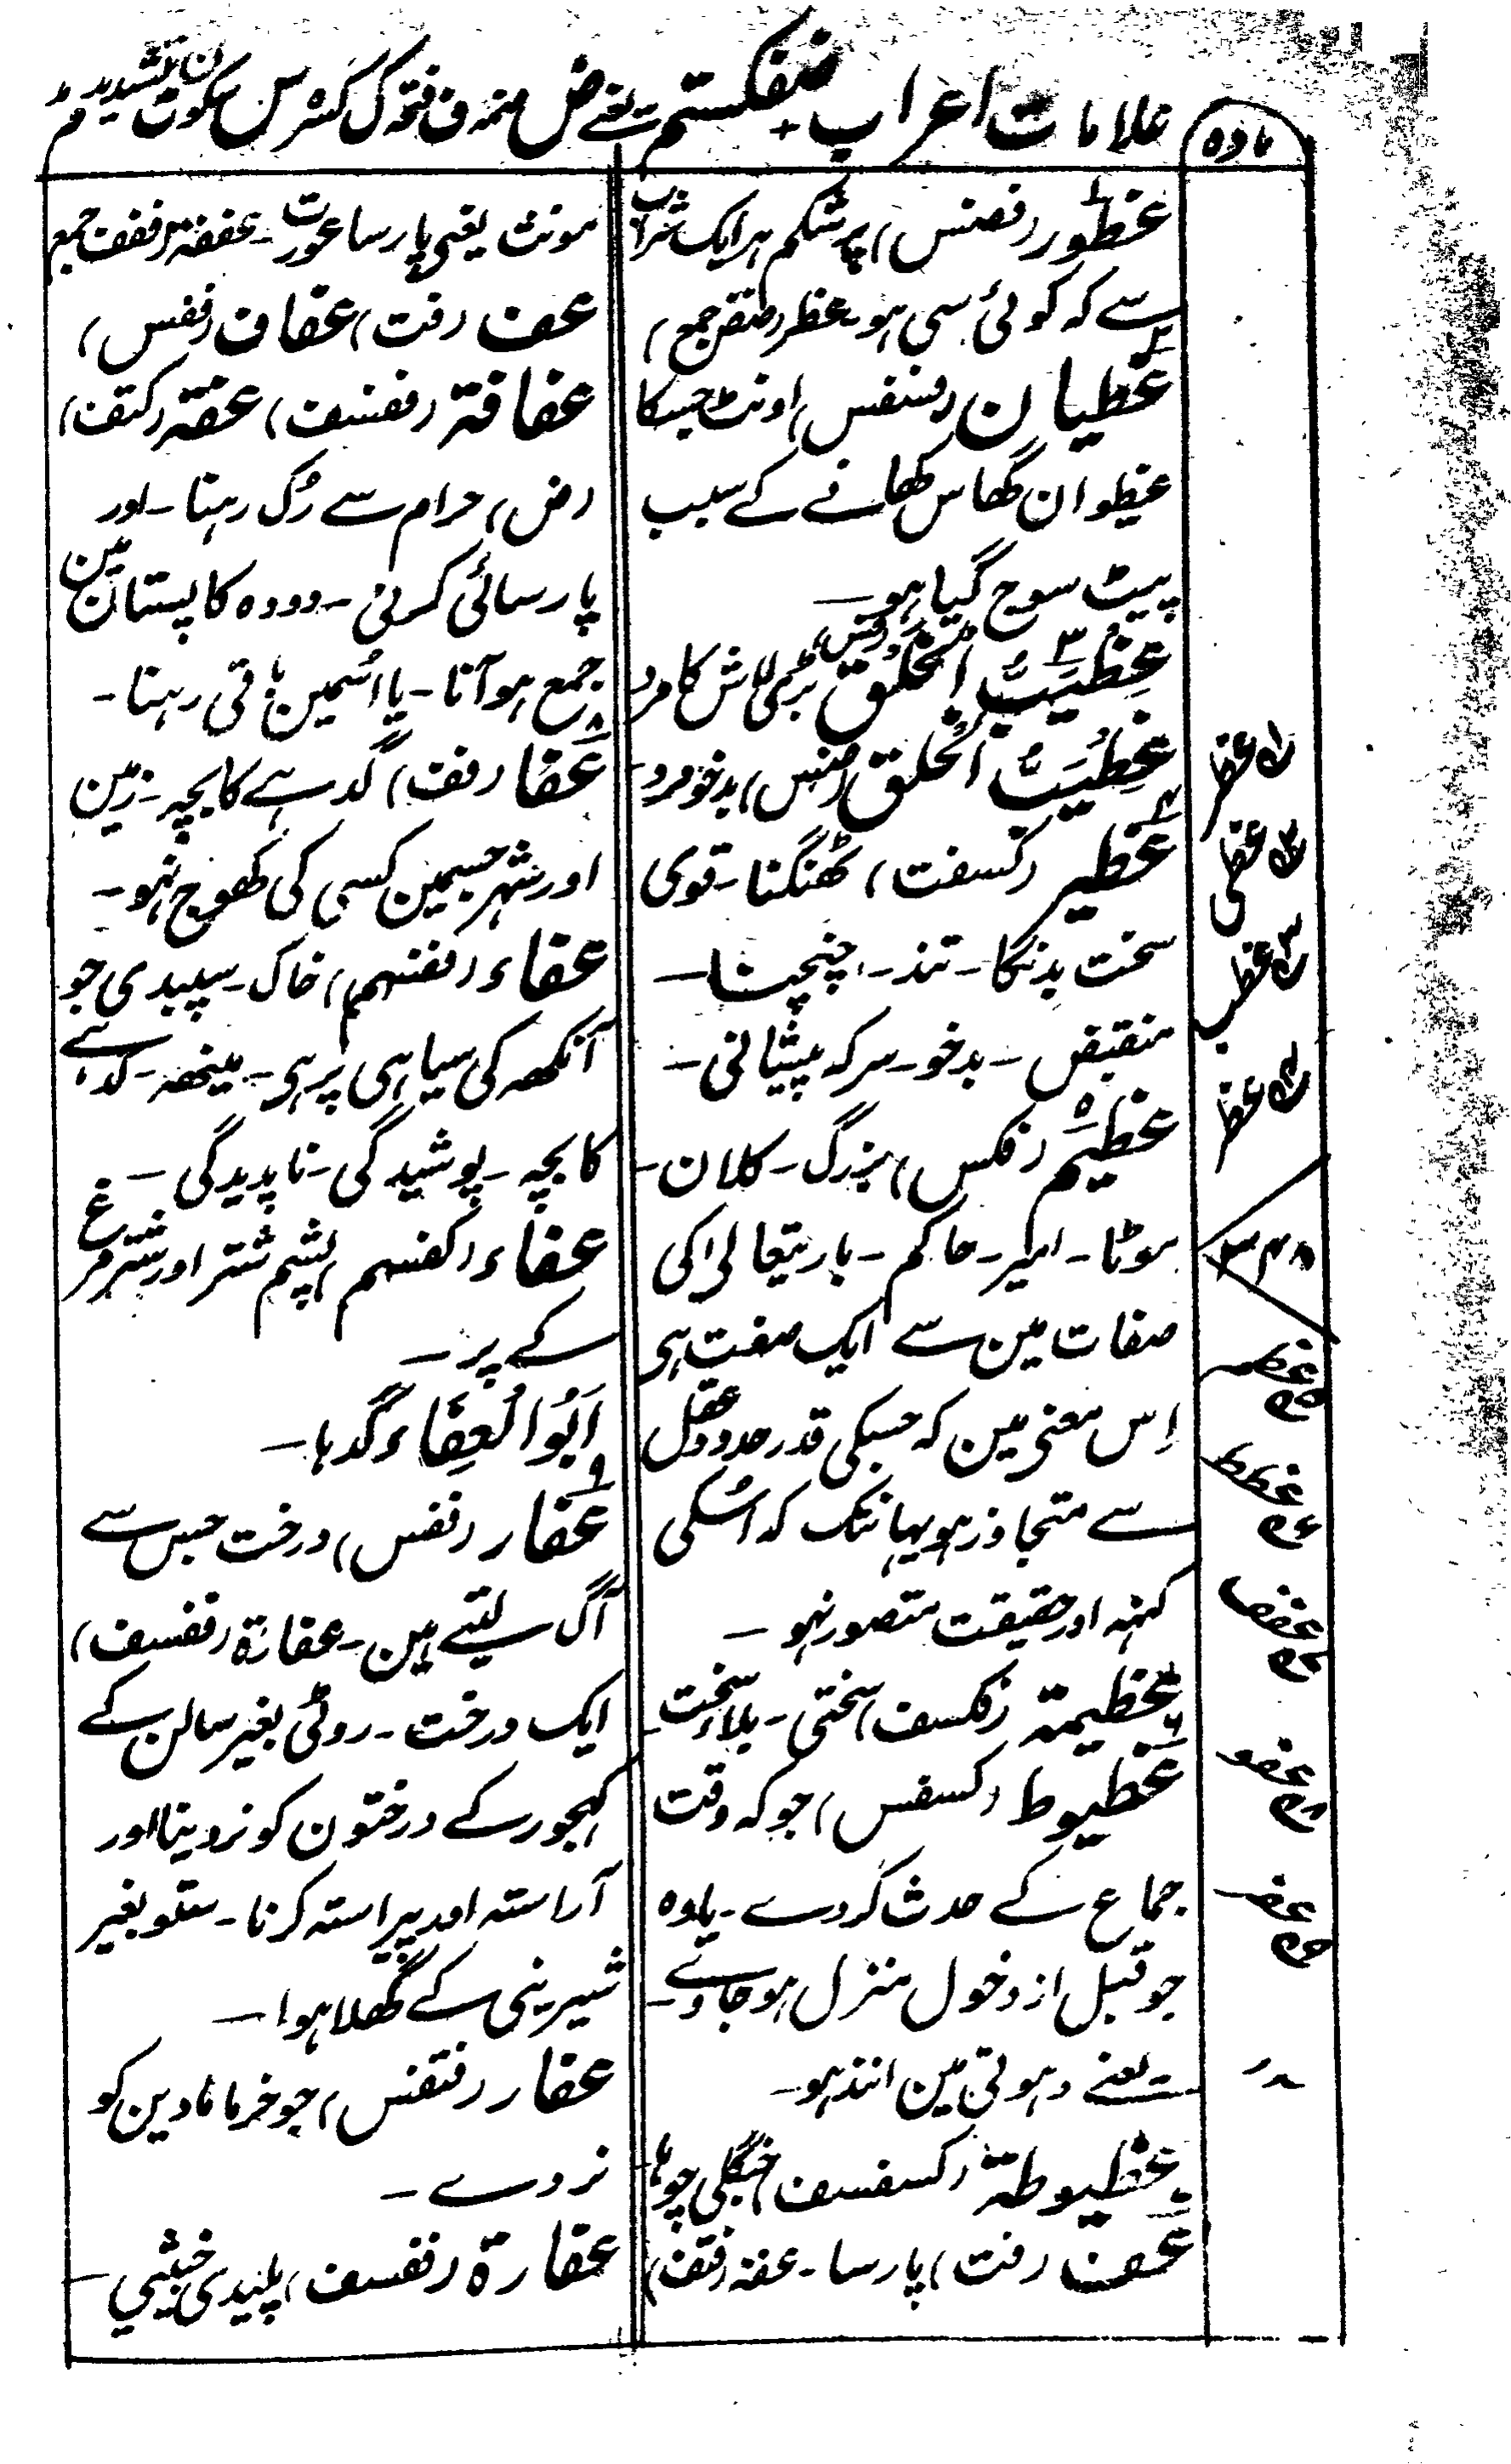 مادہ
علامات اعراب ضفکستم یعنے ض ضمہ ف فتحہ ک کسرہ س سکون ت تشدید م
عظور (فضس) پر شکم ہر ایک شراب
سے کہ کوئی سی ہو۔ عظر جمع)
عظیان (فسفس) اونٹ جسکا
عیظوان گھاس کھانے کے سبب
پیٹ سوج گیا ہو۔
عظیب الخلق بڑی لاش کا مرد
عظیب الخلق بدخو مرد۔
عظیر (کسفت) ٹھنگنا۔ قوی
سخت بدنکا۔ تند۔
منقبض۔ بدخو۔ سرکہ پیشانی۔
عظیم (فکس) بزرگ۔ کلان۔
موٹا۔ امیر۔ حاکم۔ باریتعالیٰ کی
صفات مین سے ایک صفت ہی
اِس معنی مین کہ جسکی قدر حدود عقل
سے متجاوز ہو یہانتک کہ اسُکی
کنہہ اور حقیقت متصور نہو۔
عظیمۃ (فکسف) سختی۔ بلاء سخت۔
عظیوط (کسفس) جو کہ وقت
جماع کے حدث کردے۔ یا وہ
جو قبل از دخول منزل ہو جاوے۔
یعنے دہوتی مین انند ہو۔
عظیوطۃ (کسفسف) جنگلی چوہا
عف (فت) پارسا۔ عفۃ (فتف)
مونث یعنی پارسا عورت۔ عففۃ (ففف جمع
عف (فت) عفاف (ففس)
عفافۃ (ففسف) عفۃ (کتف)
(ض) حرام سے رُک رہنا۔ اور
پارسائی کرنی۔ دودہ کا پستان مین
جمع ہو آنا۔ یا اسُمین باقی رہنا۔
عفا (فف) گدہے کا بچہ۔ زمین
اور شہر جسمین کسی کی کھوج نہو۔
عفاء (ففسہم) خاک۔ سپیدی جو
آنکھہ کی سیاہی پر ہی۔ مینھہ۔ گدہے
کا بچہ۔ پوشیدگی۔ ناپدیدگی۔
عفاء (کفسہم) پشم شتر اور شترمرغ
کے پر۔
اَبُو الْعِفَاء گدہا۔
عفار (ففس) درخت جس سے
آگ لیتے ہین۔ عفارۃ (ففسف)
ایک درخت۔ روٹی بغیر سالن کے
کہجور کے درختون کو نر دینا اور
آراستہ اور پیراستہ کرنا۔ ستو بغیر
شیرینی کے گھلا ہوا۔
عفار (فتفس) جو خرما مادین کو
نر دے۔
عفارۃ (ففسف) پلیدی خبیثی۔
(۱) عظر
(۲) عظی
(۳) عظب
(۴) عظر
۳۴۸
(۵) عظم
(۶) عظط
(۷) عفف
(۸) عفو
(۹) عفر